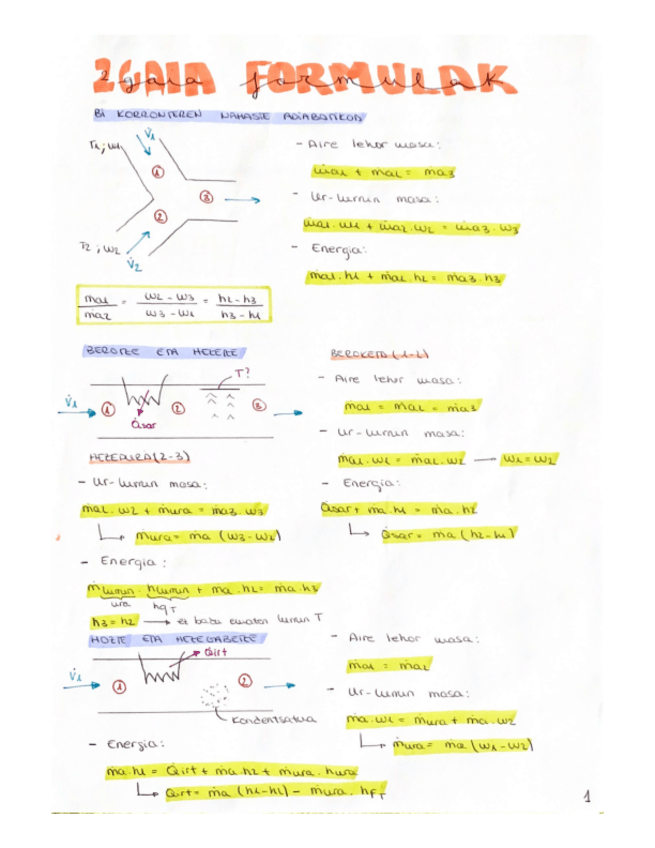 2 gaia formulak
2 GAIA FORMULAK
BI KORRONTEREN NAHASTE ADIABATIKOA
T1 ; w1
V̇1
①
②
③
T2 ; w2
V̇2
- Aire lehor masa:
ṁa1 + ṁa2 = ṁa3
- Ur-lurrun masa:
ṁa1·w1 + ṁa2·w2 = ṁa3·w3
- Energia:
ṁa1·h1 + ṁa2·h2 = ṁa3·h3
ṁa1/ṁa2 = w2-w3/w3-w1 = h2-h3/h3-h1
BEROTZE ETA HEZETZE
V̇1
①
Q̇sar
②
T?
③
BEROKETA (1-2)
- Aire lehor masa:
ṁa1 = ṁa2 = ṁa3
- Ur-lurrun masa:
ṁa1·w1 = ṁa2·w2 → w1=w2
- Energia:
Q̇sar + ṁa·h1 = ṁa·h2
↳ Q̇sar = ṁa (h2-h1)
HEZEDURA (2-3)
- Ur-lurrun masa:
ṁa2·w2 + ṁura = ṁa3·w3
↳ ṁura = ṁa (w3-w2)
- Energia:
ṁlurrun·hlurrun + ṁa·h2 = ṁa·h3
ura
hgT
h3=h2 → ez badu ematen lurrun T
HOZTE ETA HEZEGABETZE
V̇1
①
Q̇irt
②
Kondentsatua
- Aire lehor masa:
ṁa1 = ṁa2
- Ur-lurrun masa:
ṁa·w1 = ṁura + ṁa·w2
↳ ṁura = ṁa (w1-w2)
- Energia:
ṁa·h1 = Q̇irt + ṁa·h2 + ṁura·hura
↳ Q̇irt = ṁa (h1-h2) - ṁura·hfT
1